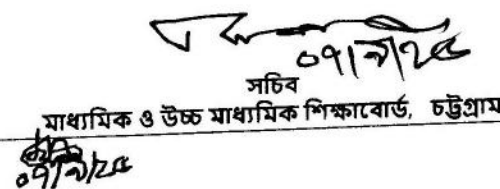 ০৭/৯/২৫
সচিব
মাধ্যমিক ও উচ্চ মাধ্যমিক শিক্ষাবোর্ড, চট্টগ্রাম
০৭/৯/২৫